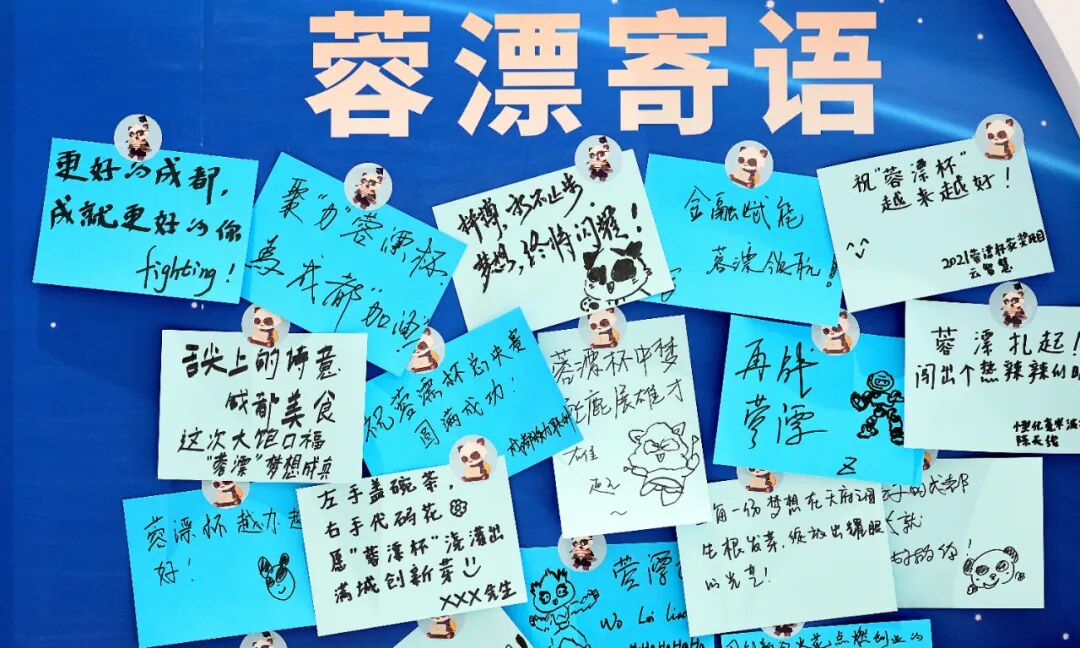 蓉漂寄语
更好的成都,
成就更好的你
fighting!
聚“力”蓉漂杯
为成都“加油”
拼搏,永不止步,
梦想,终将闪耀!
金融赋能
蓉漂领航!
祝“蓉漂杯”
越来越好!
^_^
2021蓉漂杯获奖项目
云智慧
舌尖上的诗意
成都美食
这次大饱口福
“蓉漂”梦想成真
祝蓉漂杯总决赛
圆满成功!
蓉漂杯中梦
展雄才
再战
蓉漂
Z
蓉漂扎起!
闯出个热辣辣的明
蓉漂杯越办越
好!
左手盖碗茶,
右手代码花
愿“蓉漂杯”浇灌出
满城创新芽
XXX 先生
每一份梦想在天府
生根发芽,绽放出耀眼
的光芒!
的成都
就
好的你!
蓉漂
Wo Lai
HaHaHaHa
点燃创业的